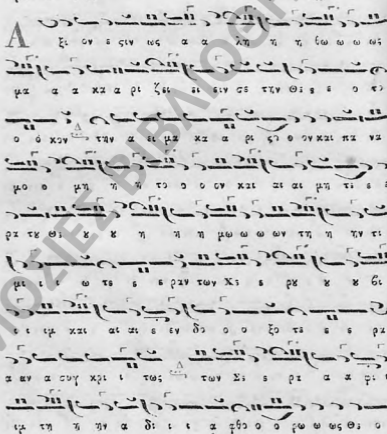 Α ξι ον ε ςιν ως α α λη η η θω ω ω ως
μα α α κα α ρι ζει ει ειν σε την Θε ε ε ο το
ο ό κον την α ει μα κα α ρι ςο ο ον και πα να
μο ο μη η η το ο ο ον και αι αι μη τε ε
ρα του Θε ου ου η η η μω ω ω ων τη η ην τι
μι ι ι ω τε ε ε ραν των Χε ε ρου ου ου βι
ι ι ιμ και αι αι ε εν δο ο ο ξο τε ε ε ρα
α αν α συγ κρι ι τως των Σε ε ρα α α φι ι
ιμ τη η ην α δι ι ι α φθο ο ο ρω ω ως Θε ο